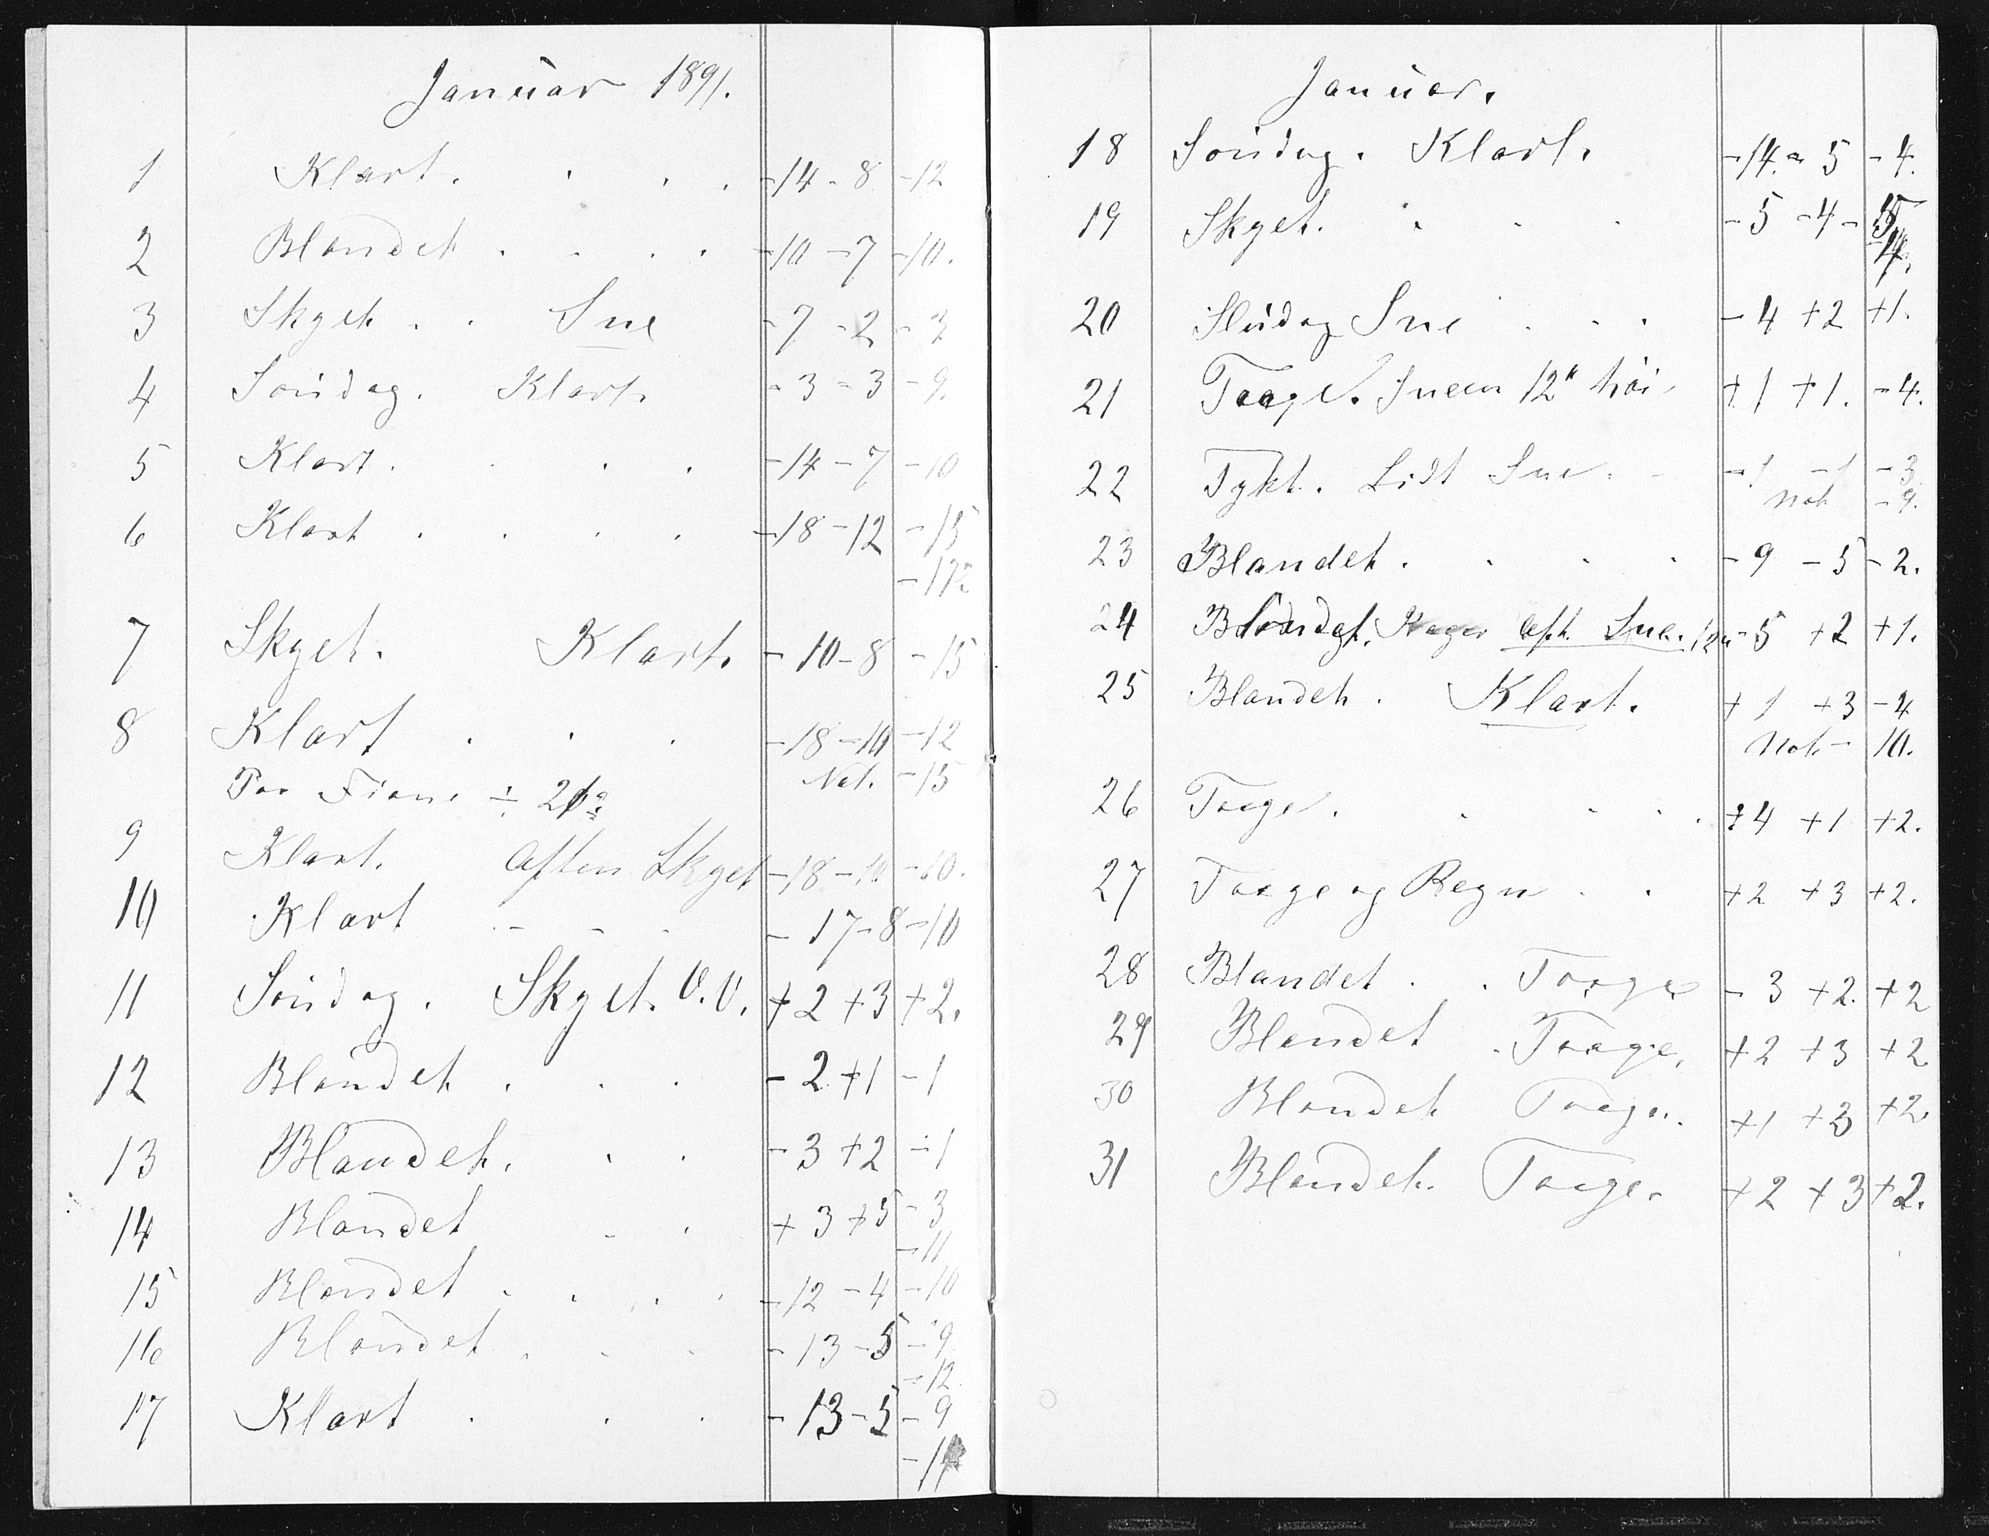 Januar 1891.
1 Klart. . . . -14 - 8 -12
2 Blandet . . . . -10 -7 -10.
3 Skyet . . Sne -7 -2 -3
4 Søndag. Klart. -3 -3 -9.
5 Klart. . . . -14 -7 -10
6 Klart . . . . -18 -12 -15
-17
7 Skyet. Klart. -10 -8 -15
8 Klart . . . -18 -10 -12
÷ 21° Nat. -15
9 Klart. Aften Skyet -18 -10 -10.
10 Klart - - - -17 -8 -10
11 Søndag. Skyet. V.V. +2 +3 +2.
12 Blandet . . . -2 +1 -1
13 Blandet. . . -3 +2 -1
14 Blandet . . +3 +5 -3
-11
15 Blandet . . . . -12 -4 -10
16 Blandet . . . -13 -5 -9
-12
17 Klart . . . -13 -5 -9
-14
Januar.
18 Søndag. Klart. -14. - 5 -4.
19 Skyet. . . . -5 -4 - 15
-14.
20 Sludog Sne . . . -4 +2 +1.
21 Taage. Sneen 12" høi. +1 +1. -4.
22 Tykt. Lidt Sne. -1 -1 -3
Nat -9.
23 Blandet . . . . -9 -5 -2.
24 Blandet. Aft. Sne. 12" -5 +2 +1.
25 Blandet . Klart. +1 +3 -4
Nat. - 10.
26 Taage. . . . . +4 +1 +2.
27 Taage og Regn . . +2 +3 +2.
28 Blandet . . Taage -3 +2. +2
29 Blandet . Taage. +2 +3 +2
30 Blandet Taage. +1 +3 +2
31 Blandet. Taage. +2 +3 +2.